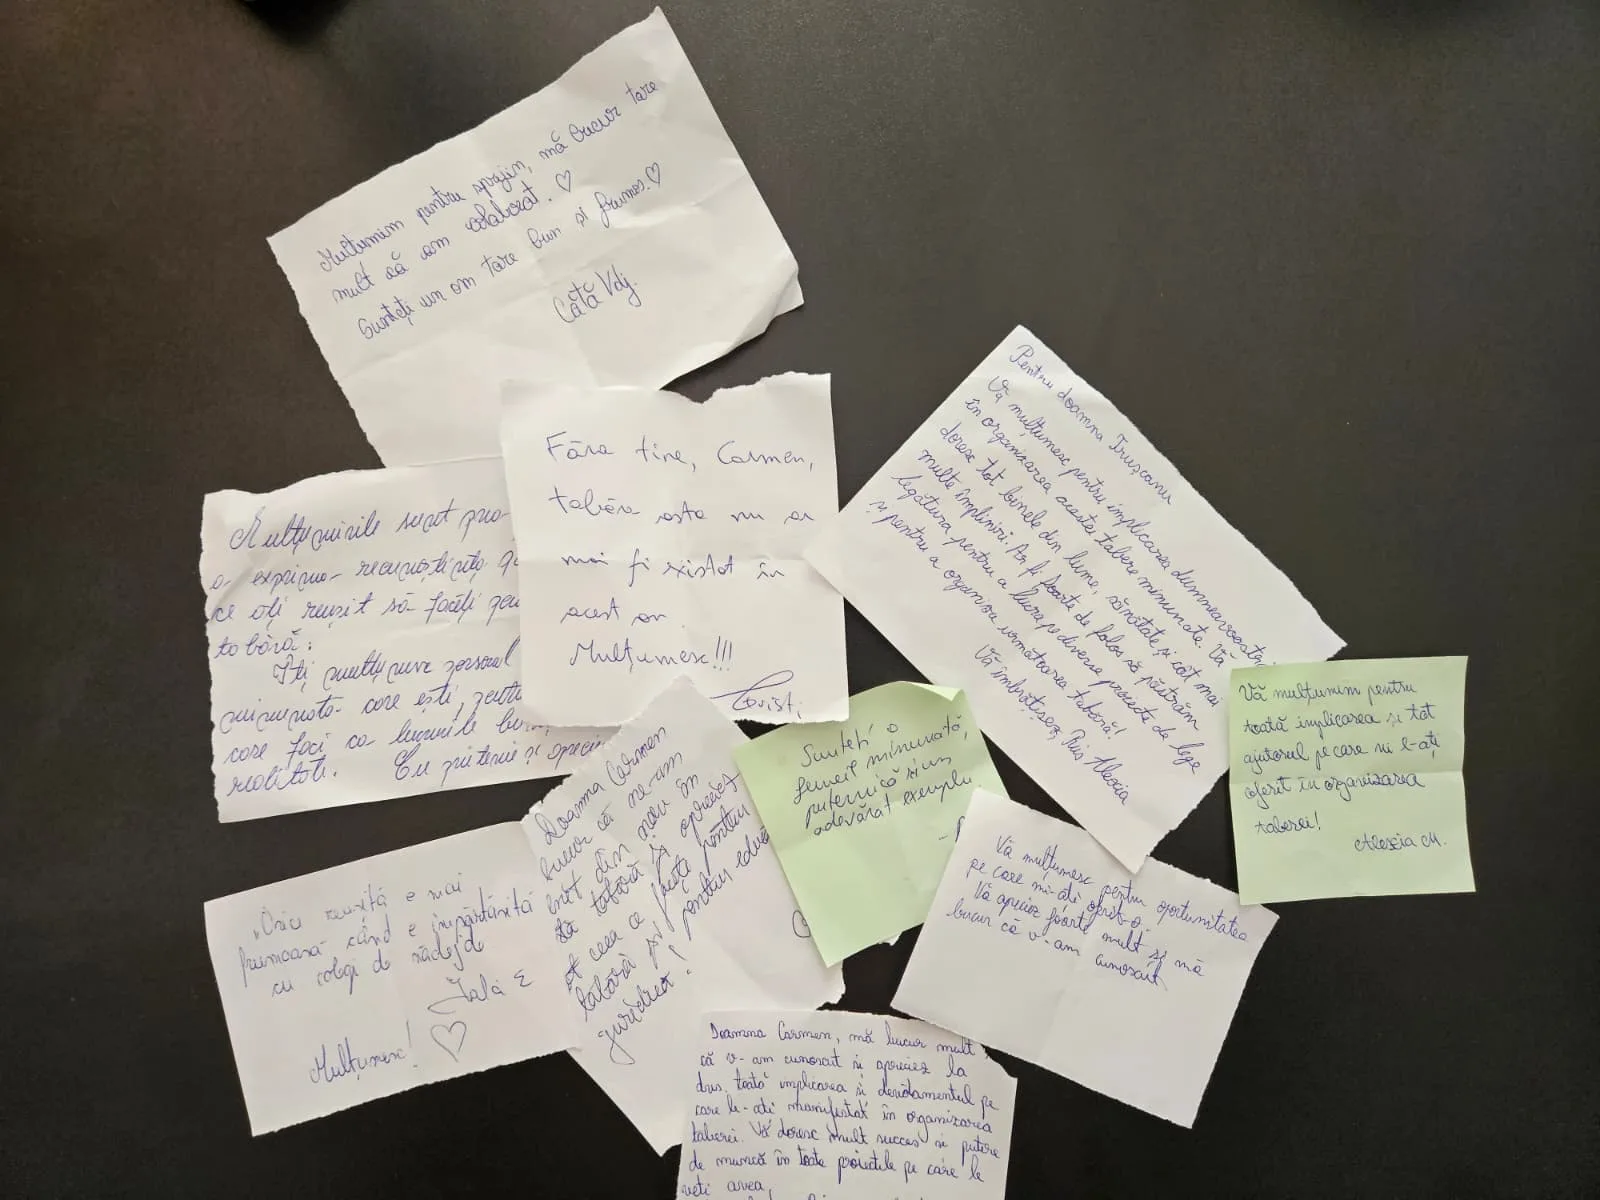 Mulțumim pentru sprijin, mă bucur tare
mult că am colaborat. ♡
Sunteți un om tare bun și frumos. ♡
Cătă Vdj.
Făra tine, Carmen,
tabăra asta nu ar
mai fi existat în
acest an.
Mulțumesc!!!
Cristi
Pentru doamna Trușcanu
Vă mulțumesc pentru implicarea dumneavoastră
în organizarea acestei tabere minunate. Vă
doresc tot binele din lume, sănătate și cât mai
multe împliniri. Ar fi foarte de folos să păstrăm
legătura pentru a lucra pe diverse proiecte de lege
și pentru a organiza următoarea tabără!
Vă îmbrățișez, Alexia
Mulțumirile sunt
a exprima recunoștința
ce ați reușit să faceți
tabără:
Îți mulțumesc
minunată care ești,
care faci ca lucrurile
realitate. Cu prietenie și
Sunteți o
femeie minunată,
puternică si un
adevărat exemplu
Vă mulțumim pentru
toată implicarea și tot
ajutorul pe care ni l-ați
oferit în organizarea
taberei!
Alexia M.
Doamna Carmen
bucur că ne-am
din nou în
tabără și apreciez
ceea ce faceți pentru
tabără și pentru
juridică!
Vă mulțumesc pentru oportunitatea
pe care mi-ați oferit-o.
Vă apreciez foarte mult și mă
bucur că v-am cunoscut
„Orice reușită e mai
frumoasă când e împărtășită
cu colegi de nădejde
Mulțumesc! ♡
Doamna Carmen, mă bucur mult
că v-am cunoscut si apreciez la
dvs. toată implicarea si devotamentul pe
care le-ati manifestat în organizarea
taberei. Vă doresc mult succes si putere
de muncă în toate proiectele pe care le
veti avea.